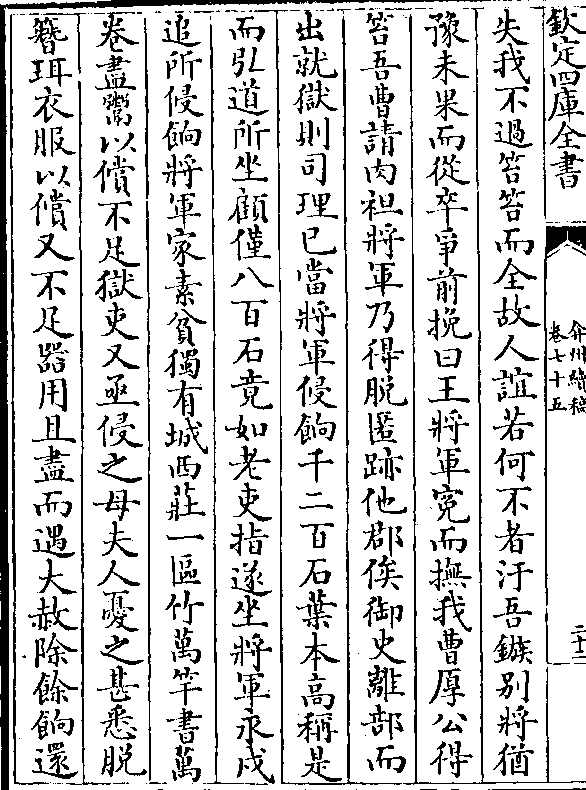 欽定四庫全書
弇州續稿
卷七十五
二十二
失我不過笞笞而全故人誼若何不者汙吾鏃别將猶
豫未果而從卒爭前挽曰王將軍寃而撫我曹厚公得
笞吾曹請肉袒將軍乃得脱匿跡他郡俟御史離部而
出就獄則司理已當將軍侵餉千二百石葉本高稱是
而弘道所坐顧僅八百石竟如老吏指遂坐將軍永戍
追所侵餉將軍家素貧獨有城西莊一區竹萬竿書萬
卷盡鬻以償不足獄吏又亟侵之母夫人憂之甚悉脱
簪珥衣服以償又不足器用且盡而遇大赦除餘餉還